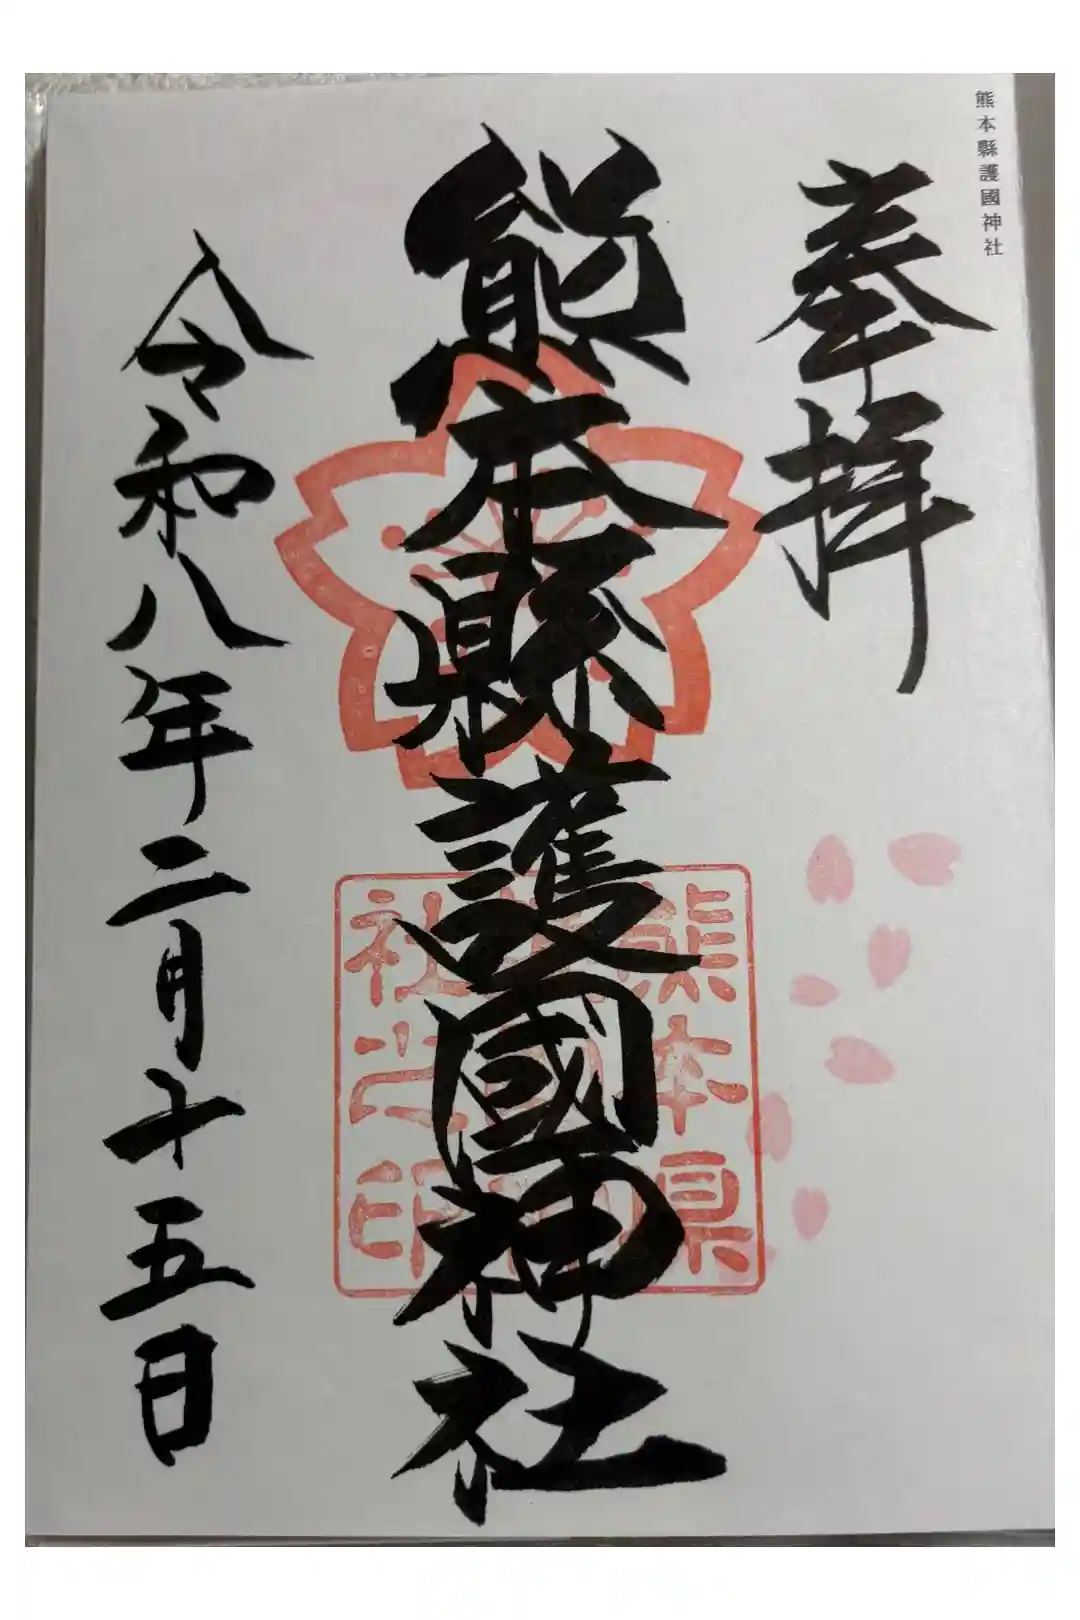 熊本縣護國神社
奉拝
熊本縣護國神社
令和八年二月十五日
熊本県
社之印